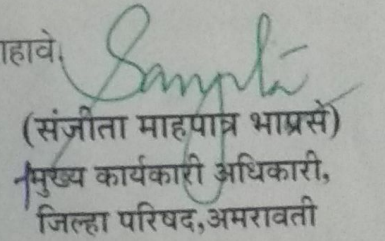 हावे.
(संजीता माहपात्र भाप्रसे)
मुख्य कार्यकारी अधिकारी,
जिल्हा परिषद,अमरावती